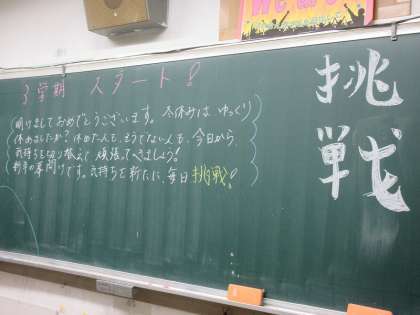 We are
3学期 スタート!
明けましておめでとうございます。冬休みは ゆっくり
休めましたか? 休めた人も、そうでない人も、今日から、
気持ちを切り替えて 頑張ってべきましょう!
新年の幕開けです。気持ちを新たに、毎日 挑戦!
挑戦